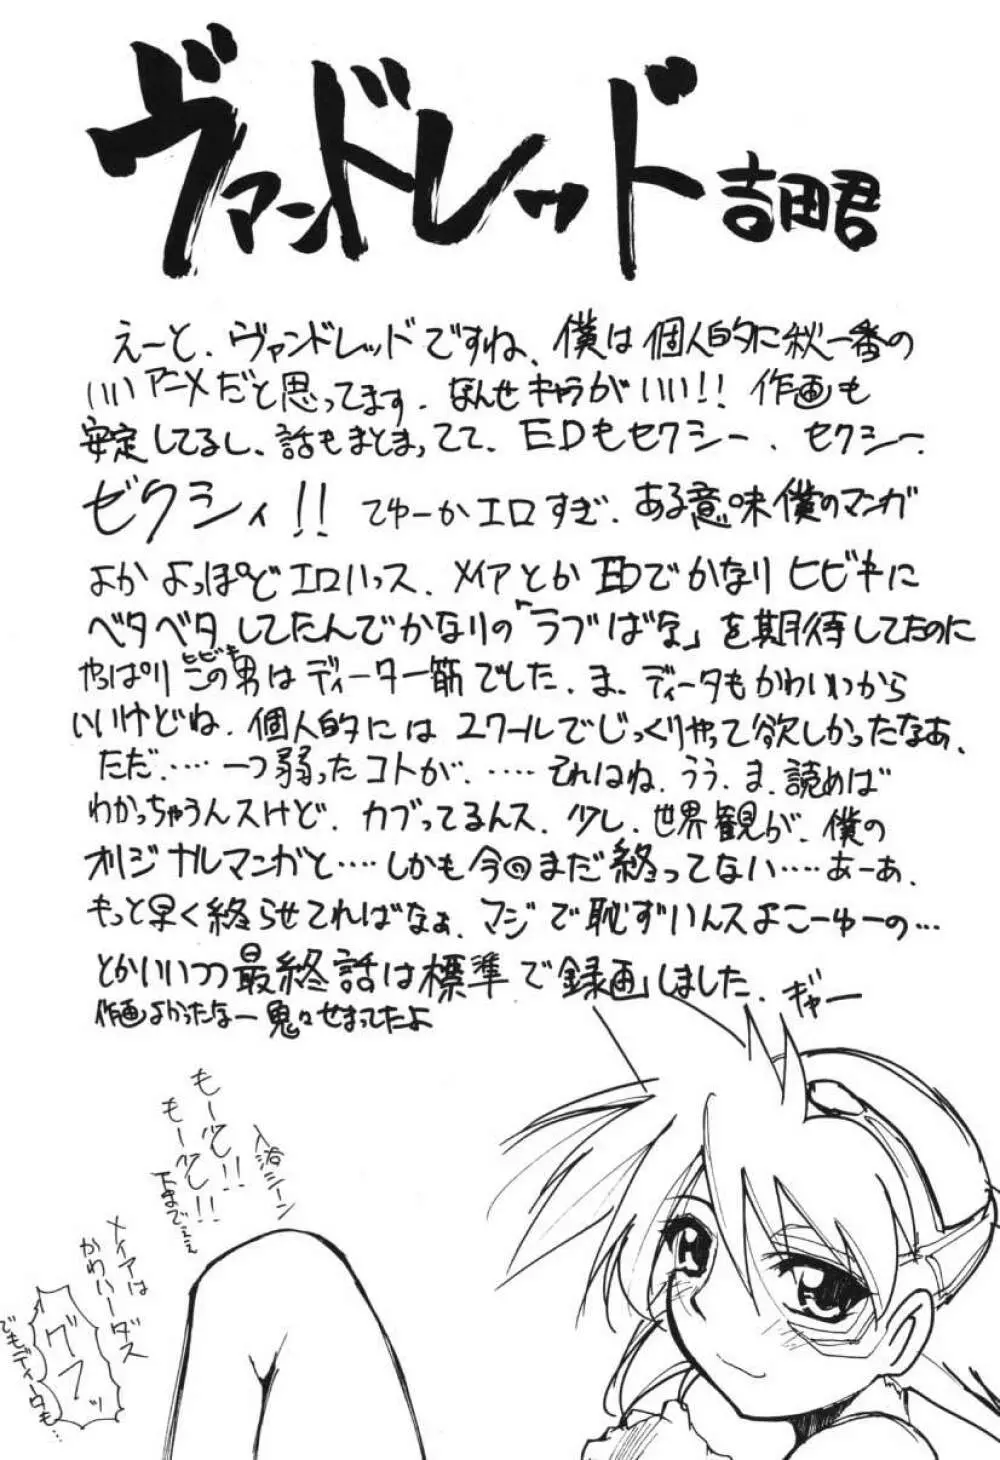 ヴァンドレッド 吉田君
えーと、ヴァンドレッドですね、僕は個人的に秋一番の
いいアニメだと思ってます。なんせキャラがいい!! 作画も
安定してるし、話もまとまってて、EDもセクシー、セクシー、
ゼクシィ!! てゆーかエロすぎ、ある意味僕のマンガ
よか よっぽどエロいっス、メイアとかEDでかなりヒビキに
ベタベタしてたんでかなりの「ラブばな」を期待してたのに
やっぱりこの男はディーター筋でした、ま、ディータもかわいいから
ヒビキ
いいけどね、個人的には 2クールでじっくりやって欲しかったなあ、
ただ、‥‥一つ弱ったコトが、‥‥それはね、うう、ま、読めば
わかっちゃうんスけど、カブってるんス、少し、世界観が、僕の
オリジナルマンガと‥‥しかも今のまだ終ってない‥‥あーあ、
もっと早く終らせてればなぁ、マジで恥ずいんスよこーゆーの…
とかいいつつ最終話は標準で録画しました、ギャー
作画よかったなー 鬼々せまってたよ
入浴シーン
もーレ!!
もーレ!!
下までぇぇ
メィアは
かわいーダス
グフッ
でもディータも…